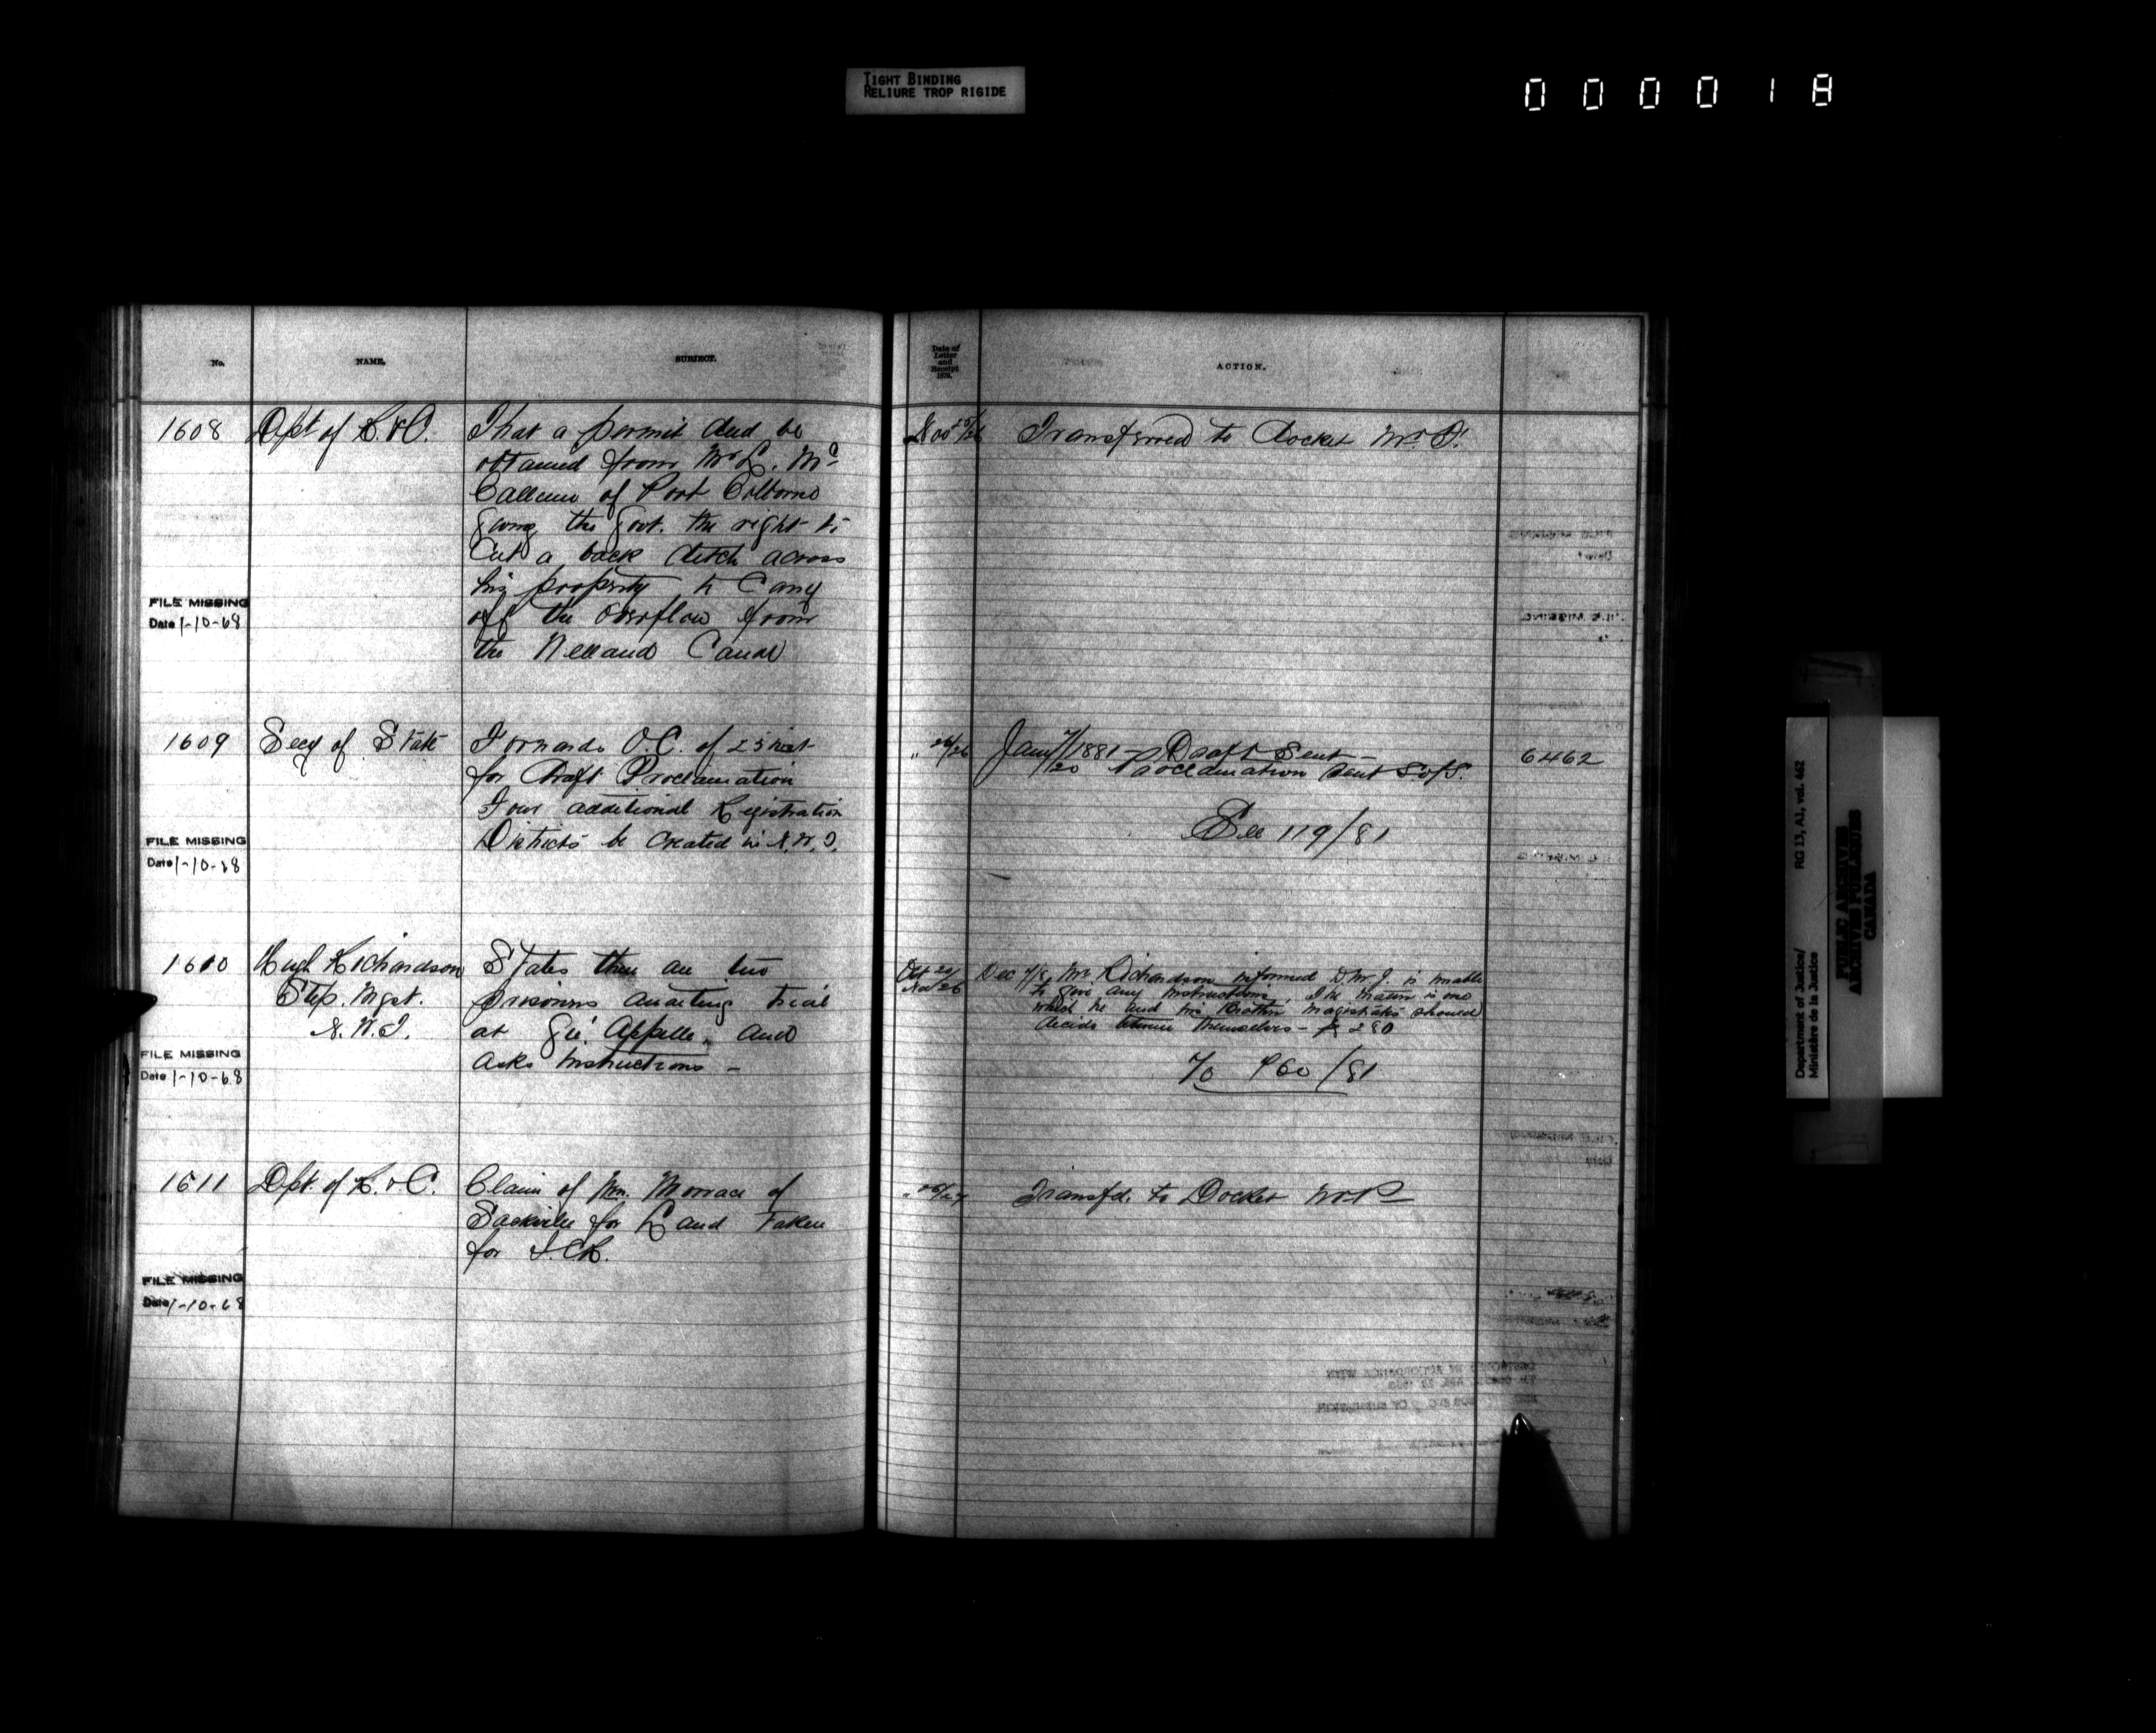 TIGHT BINDING
RELIURE TROP RIGIDE
000018
No.
NAME.
SUBJECT.
Date of
Letter
and
Receipt
1879.
ACTION.
1608
Dept of R. & C.
That a permit deed be
obtained from Mr L. Mc
Callum of Port Colborne
giving the Govt. the right to
Cut a back ditch across
his property to Carry
off the overflow from
the Welland Canal
FILE MISSING
Date 1-10-68
Nov 25/26
Transferred to Docket Mr. P.
1609
Secy of State
Forwards O.C. of 25 inst
for draft Proclamation
Four additional Registration
Districts be created in N.W.T.
FILE MISSING
Date 1-10-68
" 26/26
Jany 7/1881 - Draft Sent -
/20 Proclamation sent S of S.
See 119/81
6462
1610
Hugh Richardson
Stip. Mgst.
N.W.T.
States there are two
prisoners awaiting trial
at Qu' Appelle, and
asks instructions -
FILE MISSING
Date 1-10-68
Oct 20/
Nov 26
Dec Mr. Richardson informed D.M.J. is unable
to give any instructions. The matter is one
which he and his Brother Magistrates should
decide between themselves - P 280
To 960/81
1611
Dpt. of R. & C.
Claim of Wm. of
Sackville for Land taken
for I.C.R.
FILE MISSING
Date 1-10-68
Transfd. to Docket
Department of Justice/
Ministère de la Justice
RG 13, A1, vol. 462
PUBLIC ARCHIVES
ARCHIVES PUBLIQUES
CANADA